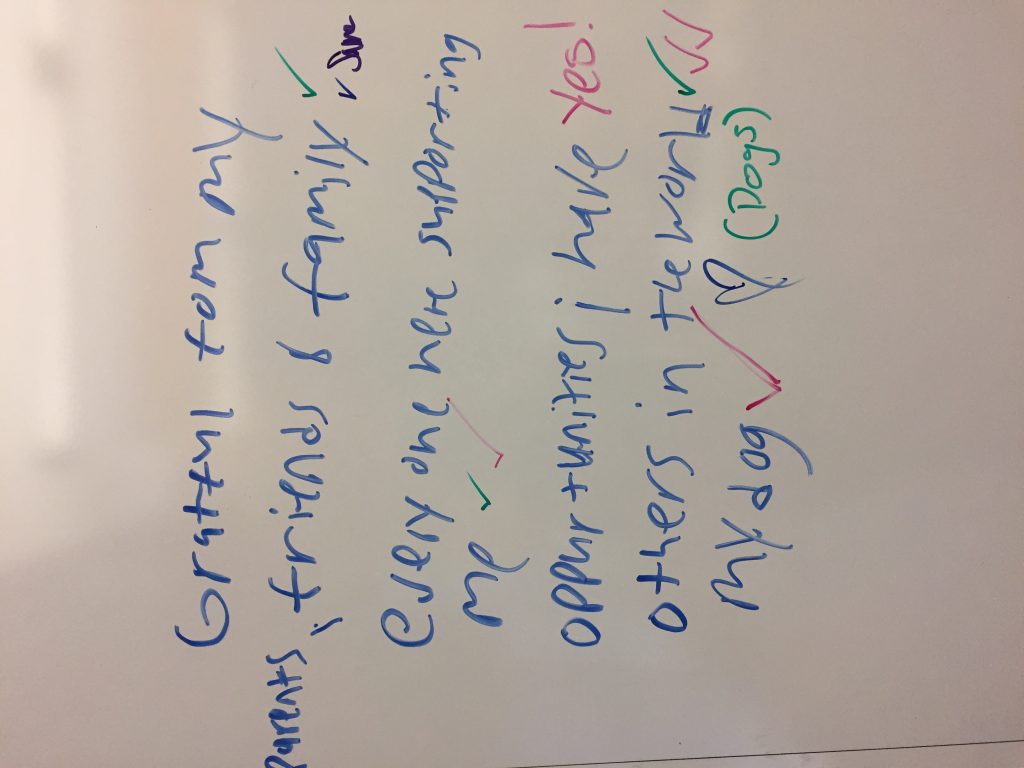 Gratful for my
parents, friends & family Jm
Everyone here supporting
me
opportunities i have Yes!
others in
My Dog (Dogs)